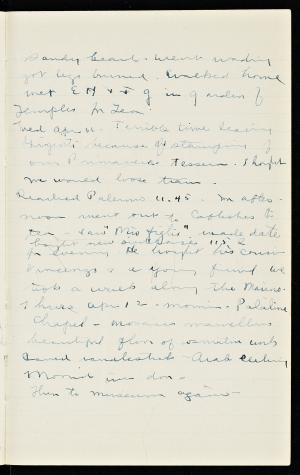 Sandy beach. Went wading
got legs burned. Walked home
met E H & F G in garden of
Temples for tea
Wed Apr 11. Terrible time leaving
Girgenti because of stamping of
our Primavera Tessera. I hoped
we would lose train.
Reached Palermo 11.45. In after-
noon went out to
tea - saw "Miss made date
bought new 115 L
for evening He brought his cousin
Vincenzo & a young friend we
took a walk along the Marina.
Thurs Apr 12 - morning - Palatine
Chapel - mosaics marvellous
beautiful floor of work
carved candlestick - Arab ceiling
Mon
Then to museum again -